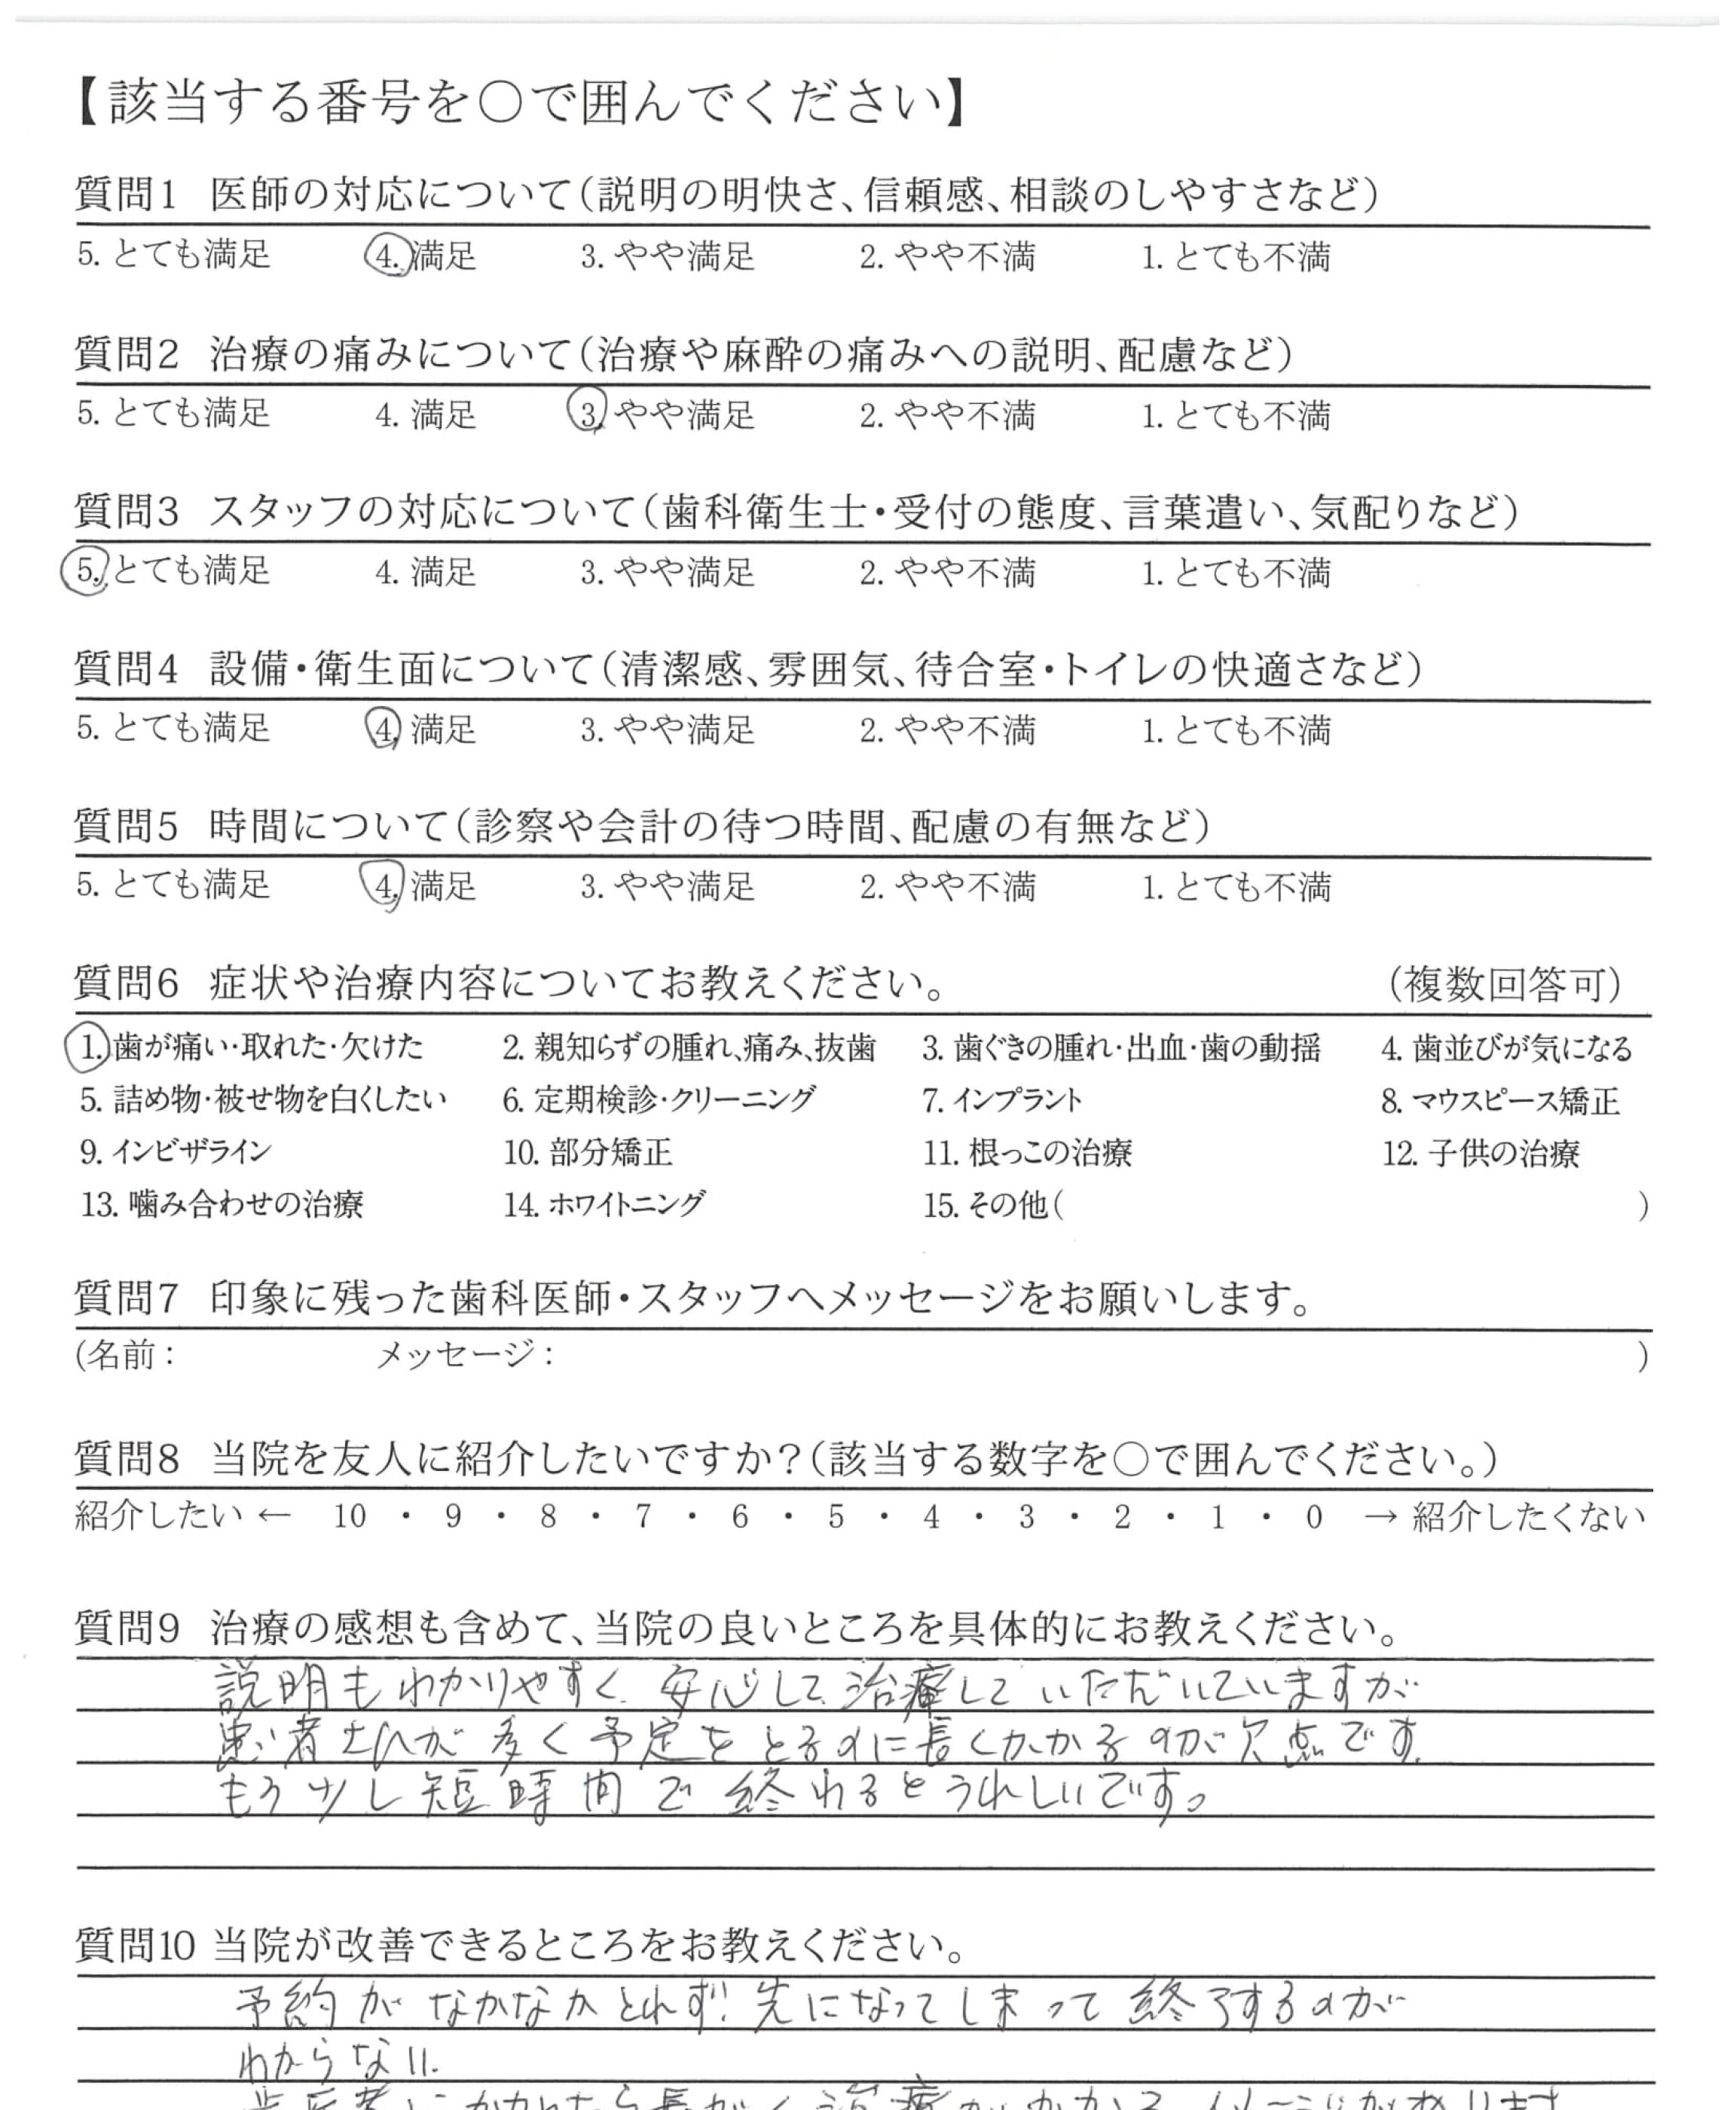 【該当する番号を○で囲んでください】
質問1 医師の対応について(説明の明快さ、信頼感、相談のしやすさなど)
5. とても満足 4. 満足 3. やや満足 2. やや不満 1. とても不満
質問2 治療の痛みについて(治療や麻酔の痛みへの説明、配慮など)
5. とても満足 4. 満足 3. やや満足 2. やや不満 1. とても不満
質問3 スタッフの対応について(歯科衛生士・受付の態度、言葉遣い、気配りなど)
5. とても満足 4. 満足 3. やや満足 2. やや不満 1. とても不満
質問4 設備・衛生面について(清潔感、雰囲気、待合室・トイレの快適さなど)
5. とても満足 4. 満足 3. やや満足 2. やや不満 1. とても不満
質問5 時間について(診察や会計の待つ時間、配慮の有無など)
5. とても満足 4. 満足 3. やや満足 2. やや不満 1. とても不満
質問6 症状や治療内容についてお教えください。 (複数回答可)
1. 歯が痛い・取れた・欠けた 2. 親知らずの腫れ、痛み、抜歯 3. 歯ぐきの腫れ・出血・歯の動揺 4. 歯並びが気になる
5. 詰め物・被せ物を白くしたい 6. 定期検診・クリーニング 7. インプラント 8. マウスピース矯正
9. インビザライン 10. 部分矯正 11. 根っこの治療 12. 子供の治療
13. 噛み合わせの治療 14. ホワイトニング 15. その他( )
質問7 印象に残った歯科医師・スタッフへメッセージをお願いします。
(名前: メッセージ: )
質問8 当院を友人に紹介したいですか?(該当する数字を○で囲んでください。)
紹介したい ← 10 ・ 9 ・ 8 ・ 7 ・ 6 ・ 5 ・ 4 ・ 3 ・ 2 ・ 1 ・ 0 → 紹介したくない
質問9 治療の感想も含めて、当院の良いところを具体的にお教えください。
説明もわかりやすく、安心して治療していただいていますが
患者さんが多く予定をとるのに長くかかるのが欠点です。
もう少し短時間で終われるとうれしいです。
質問10 当院が改善できるところをお教えください。
予約がなかなかとれず、先になってしまって終了するのが
わからない。
歯医者にかかったら長がく治療がかかるイメージがあります